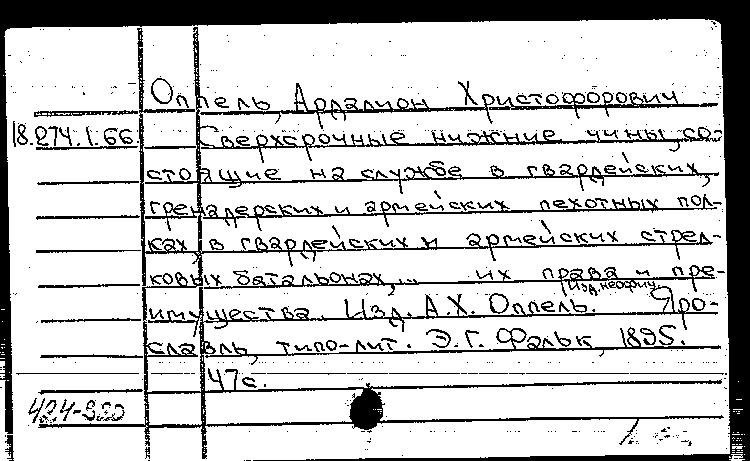 Оппель, Ардалион Христофорович
18.274.1.66. Сверхсрочные нижние чины, со-
стоящие на службе в гвардейских,
гренадерских и армейских пехотных пол-
ках, в гвардейских и армейских стрел-
ковых батальонах,... их права и пре-
Изд. неофиц.
имущества. Изд. А.Х. Оппель. Яро-
славль, типо-лит. Э.Г. Фальк, 1895.
47с.
424-920